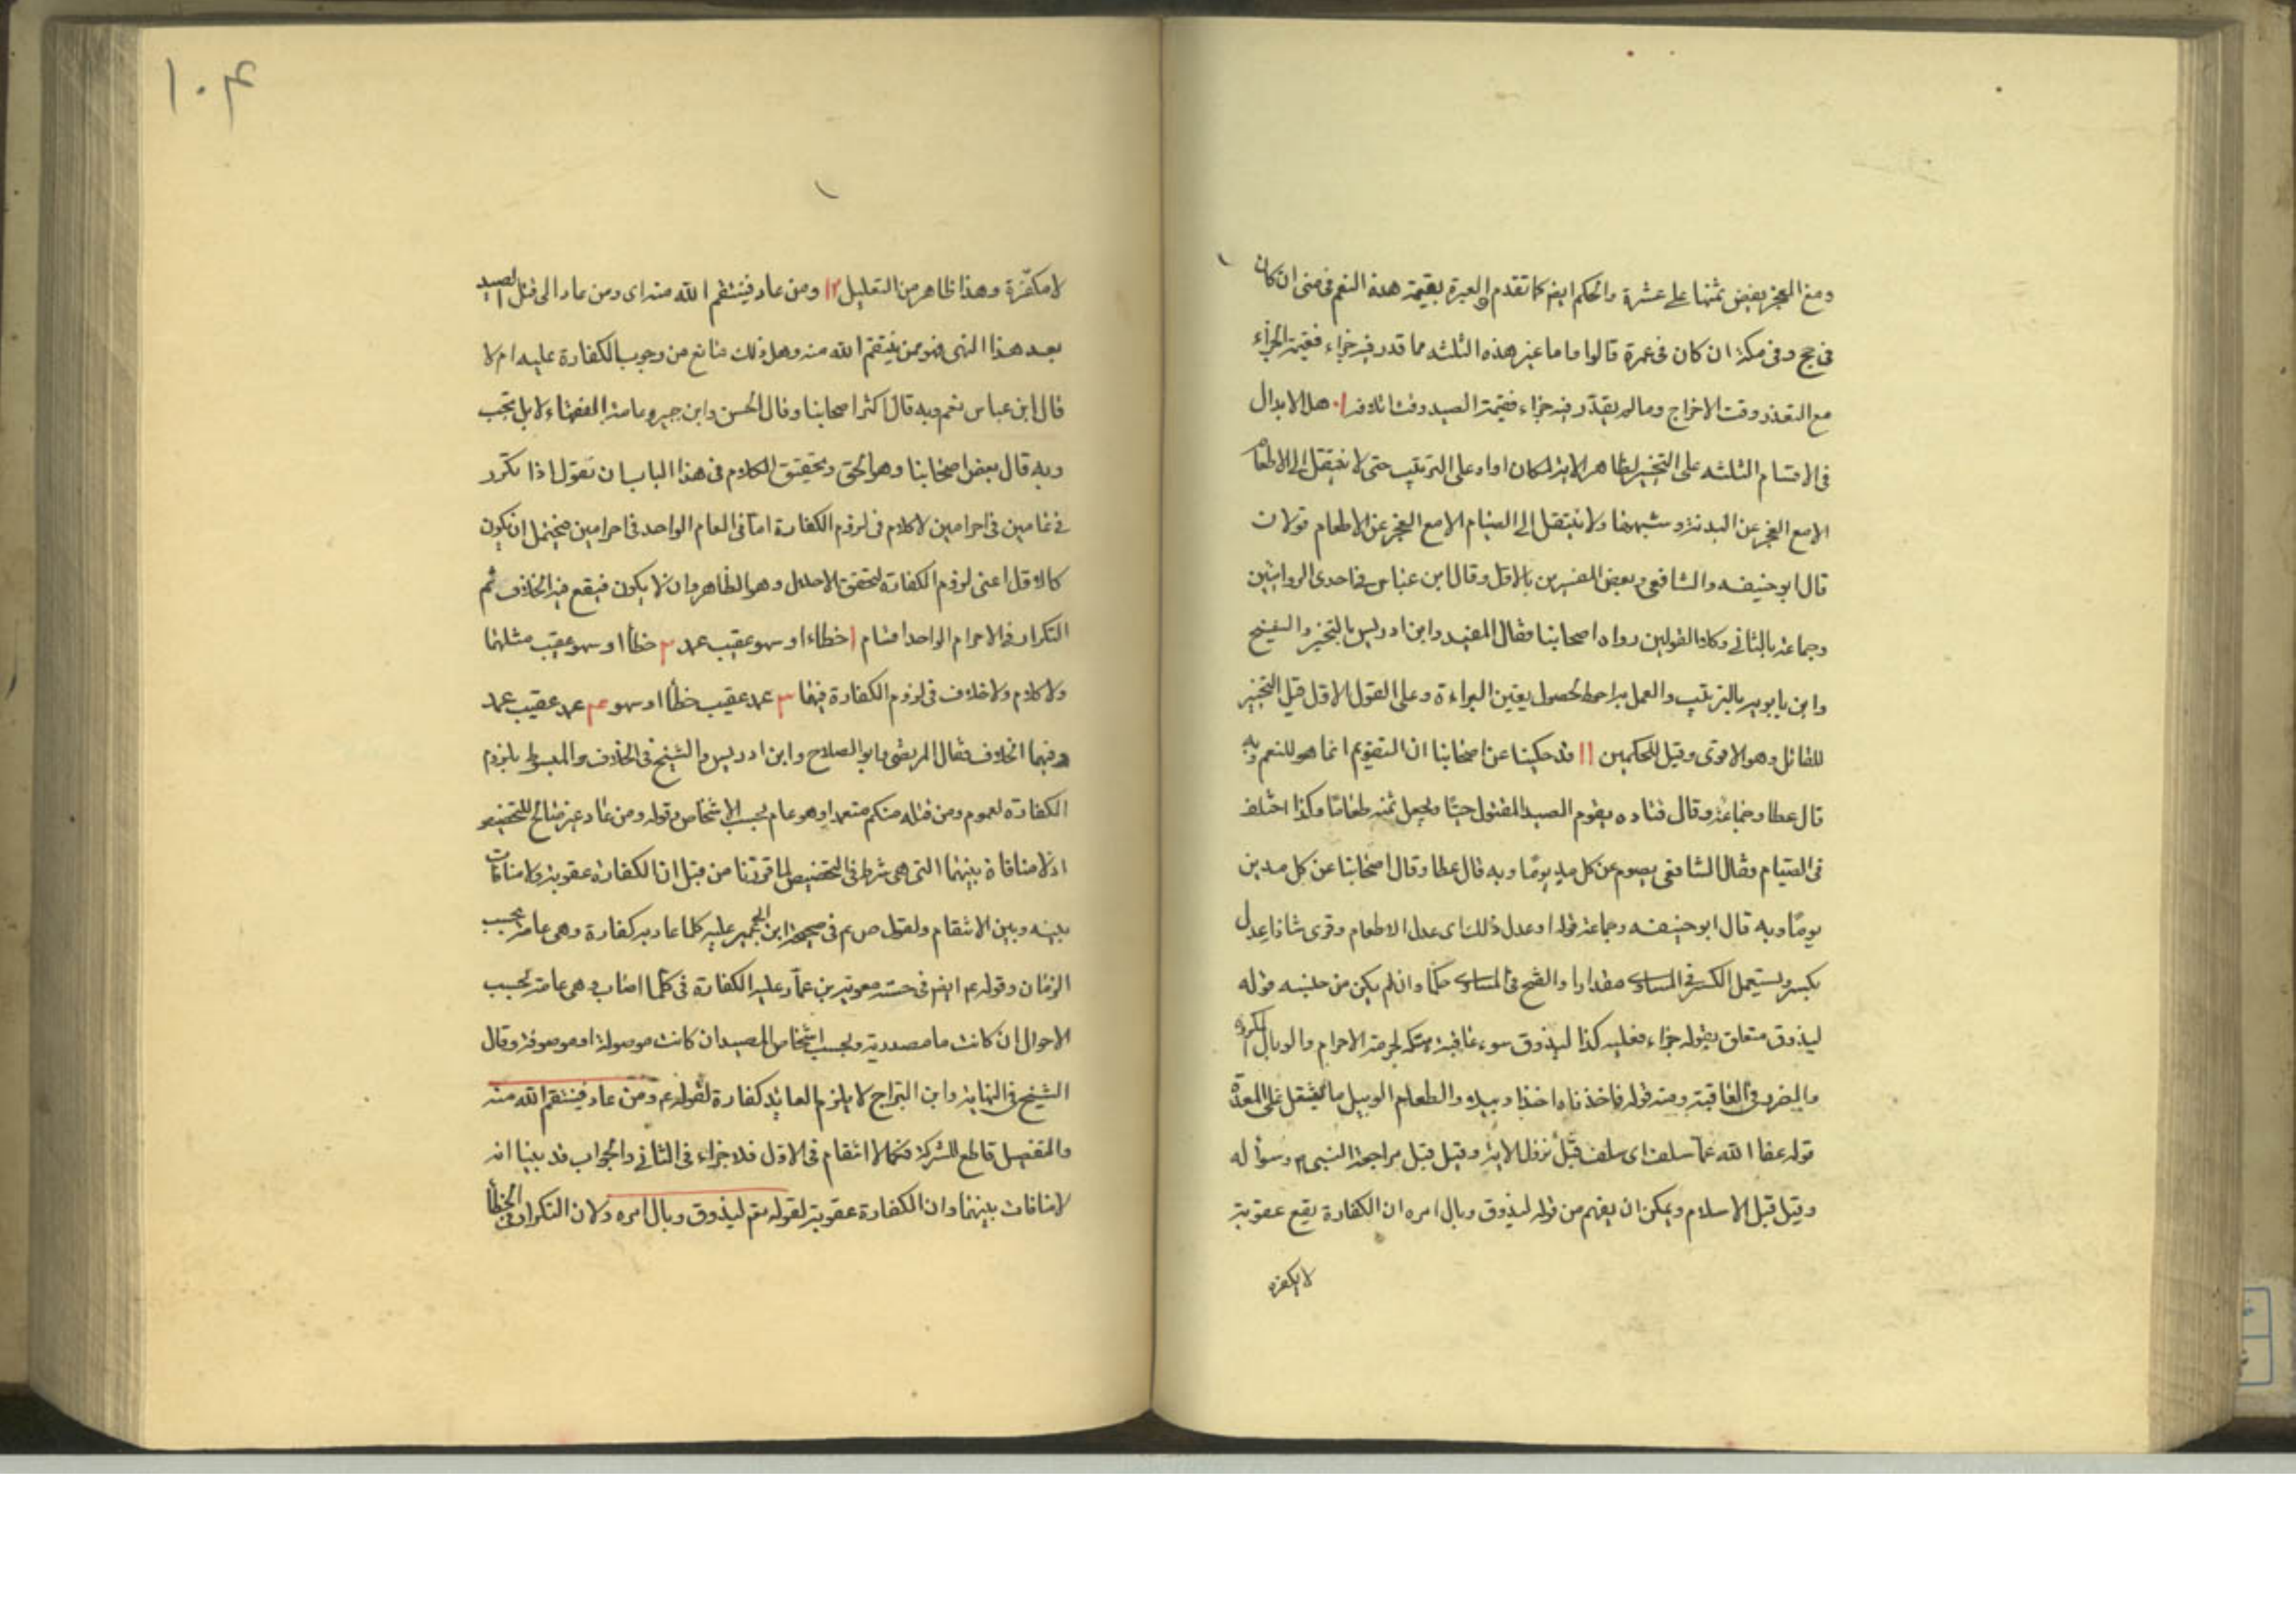 ومع العجز يفض ثمنها على عشرة والحكم ايضا كما تقدم والعبرة بقيمة هذه النعم فى منى ان كان
فى حج وفى مكة ان كان فى عمرة قالوا واما غير هذه الثلثه مما قدر فيه جزاء فقيمة الجزاء
مع التعذر وقت الاخراج وما لم يقدر فيه جزاء فقيمة الصيد وقت اتلافه ١٠ هل الابدال
فى الاقسام الثلثه على التخيير لظاهر الاية لمكان او او على الترتيب حتى لا ينتقل الى الاطعام
الا مع العجز عن البدنة وشبهها ولا ينتقل الى الصيام الا مع العجز عن الاطعام قولان
قال ابو حنيفه والشافعى وبعض المفسرين بالاول وقال ابن عباس فى احدى الروايتين
وجماعة بالثانى وكلا القولين رواه اصحابنا فقال المفيد وابن ادريس بالتخيير والشيخ
وابن بابويه بالترتيب والعمل به احوط لحصول يقين البراءة وعلى القول الاول قيل التخيير
للقاتل وهو الاقوى وقيل للحكمين ١١ قد حكينا عن اصحابنا ان التقويم انما هو للنعم وبه
قال عطا وجماعة وقال قتاده يقوم الصيد المقتول حيّا ويجعل ثمنه طعاما وكذا اختلف
فى الصيام فقال الشافعى يصوم عن كل مد يومًا وبه قال عطا وقال اصحابنا عن كل مدين
يومًا وبه قال ابو حنيفه وجماعة قوله او عدل ذلك اى عدل الاطعام وقرى شاذا عدل
بكسر ويستعمل الكسر فى المساوى مقدارا والفتح فى المساوى حكما وان لم يكن من جنسه قوله
ليذوق متعلق بقوله جزاء فعليه كذا ليذوق سوء عاقبة هتكه لحرمة الاحرام والوبال المكروه
والضرر فى العاقبة ومنه قوله فاخذناه اخذا وبيلا والطعام الوبيل ما يثقل على المعدة
قوله عفا الله عما سلف اى سلف قبل نزول الاية وقيل قبل مراجعة النبى ص وسؤاله
وقيل قبل الاسلام ويمكن ان يفهم من قوله ليذوق وبال امره ان الكفارة يقع عقوبة
لا مكفرة
١٠۴
لا مكفّرة وهذا ظاهر من التعليل ١٢ ومن عاد فينتقم الله منه اى ومن عاد الى قتل الصيد
بعد هذا النهى فهو ممن ينتقم الله منه وهل ذلك مانع من وجوب الكفارة عليه ام لا
قال ابن عباس نعم وبه قال اكثر اصحابنا وقال الحسن وابن جبير وعامة الفقهاء لا بل تجب
وبه قال بعض اصحابنا وهو الحق وتحقيق الكلام فى هذا الباب ان نقول اذا تكرر
فى عامين فى احرامين لا كلام فى لزوم الكفارة اما فى العام الواحد فى احرامين فيحتمل ان يكون
كالاول اعنى لزوم الكفارة لتحقق الاحلال وهو الظاهر وان لا يكون فيقع فيه الخلاف ثم
التكرار فى الاحرام الواحد اقسام ١ خطاء او سهو عقيب عمد ٢ خطأ او سهو عقيب مثلهما
ولا كلام ولا خلاف فى لزوم الكفارة فيهما ٣ عمد عقيب خطأ او سهو ۴ عمد عقيب عمد
وفيهما الخلاف فقال المرتضى وابو الصلاح وابن ادريس والشيخ فى الخلاف والمبسوط بلزوم
الكفارة لعموم ومن قتله منكم متعمدا وهو عام بحسب الاشخاص وقوله ومن عاد غير صالح للتخصيص
اذ لا منافاة بينهما التى هى شرط فى التخصيص لما قررنا من قبل ان الكفارة عقوبة ولا منافات
بينه وبين الانتقام ولقول ص ع فى صحيحة ابن ابى عمير عليه كلما عاد به كفارة وهى عامة بحسب
الزمان وقوله ع ايضا فى حسنة معوية بن عمار عليه الكفارة فى كلما اصاب وهى عامة بحسب
الاحوال ان كانت ما مصدرية وبحسب اشخاص الصيد ان كانت موصولة او موصوفة وقال
الشيخ فى النهاية وابن البراج لا يلزم العايد كفارة لقوله تعم ومن عاد فينتقم الله منه
والتفصيل قاطع للشركة فكما لا انتقام فى الاول فلا جزاء فى الثانى والجواب قد بينا انه
لا منافات بينهما وان الكفارة عقوبة لقوله تعم ليذوق وبال امره ولان التكرار فى الخطأ